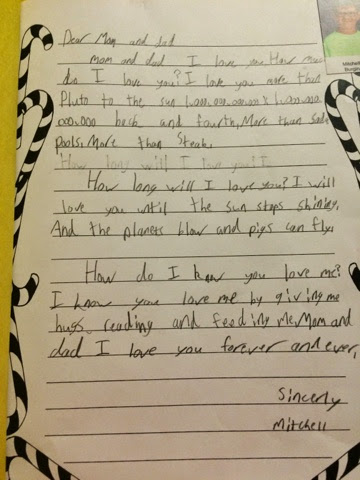 Mitchell
Dear Mom and dad
mom and dad I love you. How much
do I love you? I love you more than
Pluto to the sun
000,000 back and fourth. More than Soda
Pools. More than Steak.
How long will I love you? I
How long will I love you? I will
love you until the sun stops shining.
And the planets blow and pigs can fly.
How do I know you love me?
I know you love me by giving me
hugs reading and feeding me. Mom and
dad I love you forever and ever.
Sincerly
Mitchell